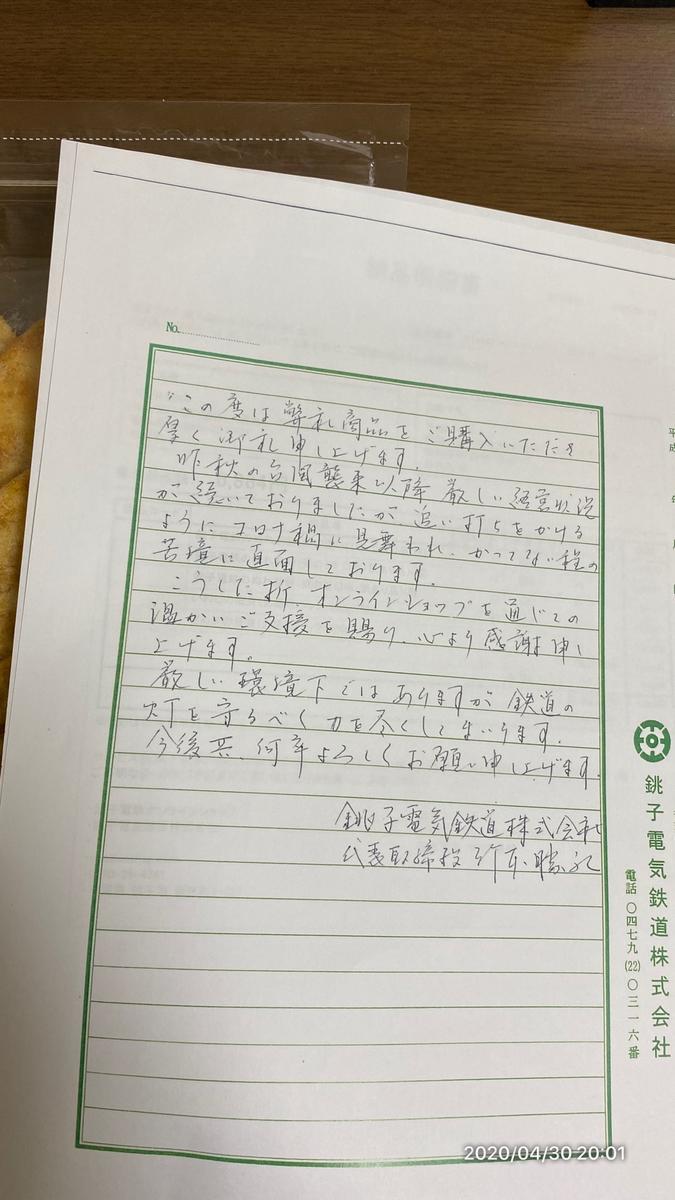 No.
この度は弊社商品をご購入いただき
厚く御礼申し上げます。
昨秋の台風襲来以降厳しい経営状況
が続いておりましたが追い打ちをかける
ようにコロナ禍に見舞われ、かつてない程の
苦境に直面しております。
こうした折オンラインショップを通じての
温かいご支援を賜り、心より感謝申し
上げます。
厳しい環境下ではありますが鉄道の
灯を守るべく力を尽くしてまいります。
今後共、何卒よろしくお願い申し上げます。
銚子電気鉄道株式会社
代表取締役 竹本勝紀
銚子電気鉄道株式会社
電話〇四七九(22)〇三一六番
平成
2020/04/30 20:01